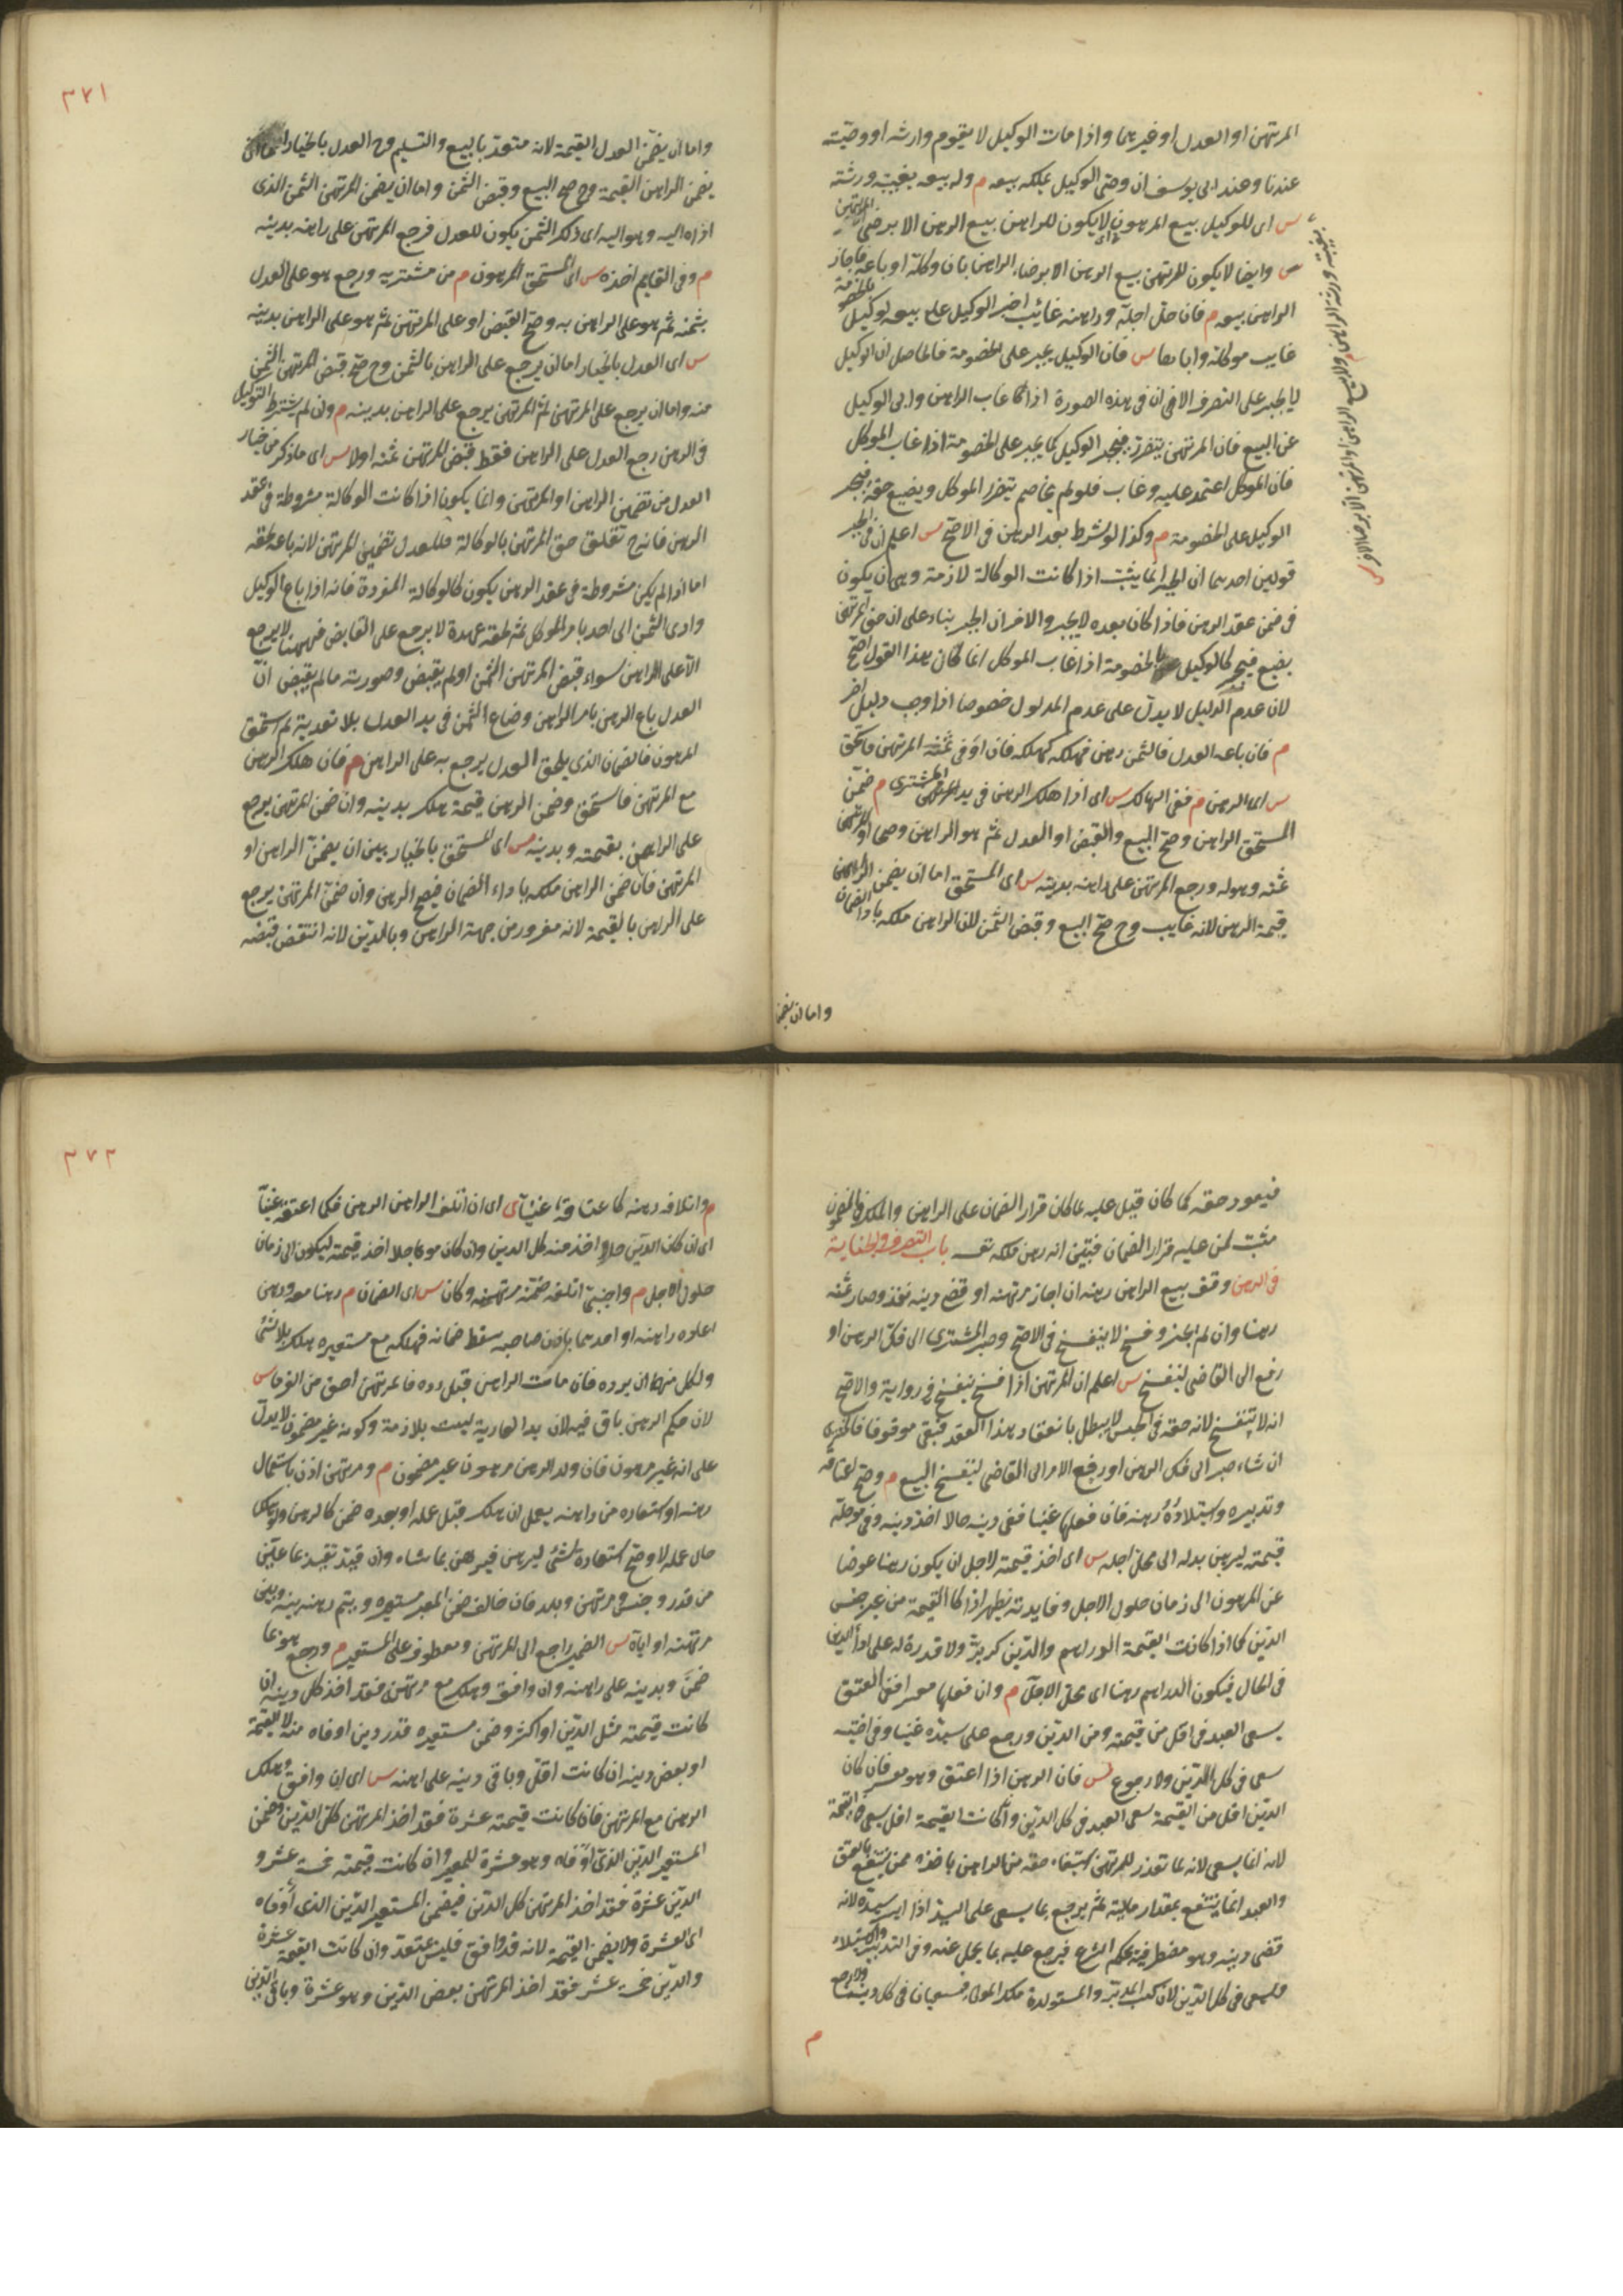 المرتهن او العدل او غيرهما واذا مات الوكيل لا يقوم وارثه او وصيّه
عندنا وعند ابى يوسف ان وصى الوكيل يملك بيعه م وله بيعه بغيبة ورثته
س اى للوكيل بيع المرهون لا يكون للراهن بيع الرهن الا برضى المرتهن
س وايضا لا يكون للمرتهن بيع الرهن الا برضاء الراهن بان وكله او باعه فاجاز
الراهن بيعه م فان حلّ اجله وراهنه غائب اجبر الوكيل على بيعه كوكيل بالخصومة
غاب موكله واباها س فان الوكيل يجبر على الخصومة فالحاصل ان الوكيل
لا يجبر على التصرف الا فى ان فى هذه الصورة اذا غاب الراهن وابى الوكيل
عن البيع فان المرتهن يتضرر فيجبر الوكيل كما يجبر على الخصومة اذا غاب الموكل
فان الموكل اعتمد عليه وغاب فلو لم يخاصم يتضرر الموكل ويضيع حقه فيجبر
الوكيل على الخصومة م وكذا لو شرط بعد الرهن فى الاصح س اعلم ان فى الجبر
قولين احدهما ان الجبر انما يثبت اذا كانت الوكالة لازمة وهى ان يكون
فى ضمن عقد الرهن فاذا كان بعده لا يجبر والاخر ان الجبر بناء على ان حق المرتهن
يضيع فيجبر كالوكيل بالخصومة اذا غاب الموكل انما كان هذا القول اصح
لان عدم الدليل لا يدل على عدم المدلول خصوصا اذا وجب دليل اخر
م فان باعه العدل فالثمن رهن فهلكه كهلكه فان اوفى ثمنه المرتهن فاستحق
س اى الرهن م ففى الهالك س اى اذا هلك الرهن فى يد المشترى م ضمّن
المستحق الراهن وصح البيع والقبض او العدل ثم هو الراهن وصحا او المرتهن
ثمنه وهو له ورجع المرتهن على راهنه بدينه س اى المستحق اما ان يضمن الراهن
قيمة الرهن لانه غاصب وح صحّ البيع وقبض الثمن لان الراهن ملكه باداء الضمان
واما ان يضمن
٣٧١
واما ان يضمّن العدل القيمة لانه متعد بالبيع والتسليم وح العدل بالخيار اما ان
يضمن الراهن القيمة وح صح البيع وقبض الثمن واما ان يضمن المرتهن الثمن الذى
اداه اليه وهو اليه اى ذلك الثمن يكون للعدل فرجع المرتهن على راهنه بدينه
م وفى القايم اخذه س اى المستحق المرهون م من مشتريه ورجع هو على العدل
بثمنه ثم هو على الراهن به وصح القبض او على المرتهن ثم هو على الراهن بدينه
س اى العدل بالخيار اما ان يرجع على الراهن بالثمن وح صح قبض المرتهن الثمن
منه واما ان يرجع على المرتهن ثم المرتهن يرجع على الراهن بدينه م وان لم يشترط التوكيل
فى الرهن رجع العدل على الراهن فقط قبض المرتهن ثمنه اولا س اى ما ذكر من خيار
العدل من تضمين الراهن او المرتهن وانما يكون اذا كانت الوكالة مشروطة فى عقد
الرهن فانه ح تعلق حق المرتهن بالوكالة فللعدل تضمين المرتهن لانه باعه لحقه
اما اذا لم يكن مشروطة فى عقد الرهن يكون كالوكالة المفردة فانه اذا باع الوكيل
وادى الثمن الى احد بامر الموكل ثم لحقه عهدة لا يرجع على القابض فههنا لا يرجع
الا على الراهن سواء قبض المرتهن الثمن او لم يقبض وصورته ما لم يقبض انّ
العدل باع الرهن بامر الراهن وضاع الثمن فى يد العدل بلا تعديه ثم استحق
المرهون فالضمان الذى يلحق العدل يرجع به على الراهن م فان هلك الرهن
مع المرتهن فاستحق وضمن الراهن قيمة هلك بدينه وان ضمن المرتهن يرجع
على الراهن بقيمته وبدينه س اى المستحق بالخيار بين ان يضمن الراهن او
المرتهن فان ضمن الراهن ملكه باداء الضمان فيصح الرهن وان ضمّن المرتهن يرجع
على الراهن بالقيمة لانه مغرور من جهة الراهن وبالدين لانه انتقض قبضه
فيعود حقه كما كان قيل عليه لما كان قرار الضمان على الراهن والملك فى المضمون
مثبت لمن عليه قرار الضمان فتبين انه رهن ملكه باب التصرف والجناية
فى الرهن وقف بيع الراهن رهنه ان اجاز مرتهنه او قضى دينه نفذ وصار ثمنه
رهنا وان لم يجز وفسخ لا ينفسخ فى الاصح وصبر المشترى الى فكّ الرهن او
رفع الى القاضى ليفسخ س اعلم ان المرتهن اذا فسخ ينفسخ فى رواية والاصح
انه لا ينفسخ لانه حقه فى الحبس لا يبطل بانعقاد هذا العقد فبقى موقوفا فالمشترى
ان شاء صبر الى فك الرهن او رفع الامر الى القاضى ليفسخ البيع م وصح اعتاقه
وتدبيره واستيلاده رهنه فان فعلها غنيا ففى دينه حالا اخذ دينه وفى مؤجله
قيمته ليرهن بدله الى محل اجله س اى اخذ قيمته لاجل ان يكون رهنا عوضا
عن المرهون الى زمان حلول الاجل وفايدته يظهر اذا كا القيمة من غير جنس
الدين كما اذا كانت القيمة الدراهم والدين كر بر ولا قدرة له على اداء الدين
فى الحال فيكون الدراهم رهنا الى محل الاجل م وان فعلها معسرا ففى العتق
يسعى العبد فى اقل من قيمته ومن الدين ورجع على سيده غنيا وفى اختيه
سعى فى كل الدين ولا رجوع س فان الراهن اذا اعتق وهو معسر فان كان
الدين اقل من القيمة سعى العبد فى كل الدين وان كانت القيمة اقل يسعى فى القيمة
لانه انما يسعى لانه لما تعذر للمرتهن استيفاء حقه من الراهن ياخذه ممن ينتفع بالعتق
والعبد انما ينتفع بمقدار ماليته ثم يرجع بما يسعى على السيد اذا ايسر سيده لانه
قضى دينه وهو مضطر فيه بحكم الشرع فيرجع عليه بما تحمل عنه وفى التدبير والاستيلاد
يسعى فى كل الدين لان كسب المدبر والمستولدة ملك المولى فيسعيان فى كل دينه ولا رجوع
م
٣٧٢
م واتلافه رهنه كاعتاقه غنيّا س اى ان اتلف الراهن الرهن فكما اعتقه غنيّا
اى ان كان الدين حالا اخذ منه كل الدين وان كان مؤجلا اخذ قيمته ليكون الى زمان
حلول الاجل م واجنبى اتلفه ضمنه مرتهنه وكان س اى الضمان م رهنا معه ورهن
اعاره راهنه او احدهما باذن صاحبه سقط ضمانه فهلكه مع مستعيره هلك بلا شئ
ولكل منهما ان يرده فان مات الراهن قبل رده فالمرتهن احق من الغرماء س
لان حكم الرهن باق فيه لان يد العارية ليست بلازمة وكونه غير مضمون لا يدل
على انه غير مرهون فان ولد الرهن مرهون غير مضمون م ومرتهن اذن باستعمال
رهنه او استعاره من راهنه يعمل ان هلك قبل عمله او بعده ضمن كالرهن ولو هلك
حال عمله لا وصح استعارة شئ ليرهن فيرهن بما شاء وان قيد تقيد بما عينه
من قدر وجنس ومرتهن وبلد فان خالف ضمن المعير مستعيره ويتم رهنه بينه وبين
مرتهنه او اياه س الضمير راجع الى المرتهن ومعطوف على المستعير م ورجع هو بما
ضمن وبدينه على راهنه وان وافق وهلك مع مرتهنه فقد اخذ كل دينه ان
كانت قيمته مثل الدين او اكثر وضمن مستعيره قدر دين اوفاه منه لا القيمة
او بعض دينه ان كانت اقل وباقى دينه على راهنه س اى ان وافق وهلك
الرهن مع المرتهن فان كانت قيمته عشرة فقد اخذ المرتهن كل الدين وضمن
المستعير الدين الذى اوفاه وهو عشرة للمعير وان كانت قيمته خمسة عشر و
الدين عشرة فقد اخذ المرتهن كل الدين فيضمن المستعير الدين الذى اوفاه
اى العشرة ولا يضمن القيمة لانه قد وافق فليس بمتعد وان كانت القيمة عشرة
والدين خمسة عشر فقد اخذ المرتهن بعض الدين وهو عشرة وباقى الدين